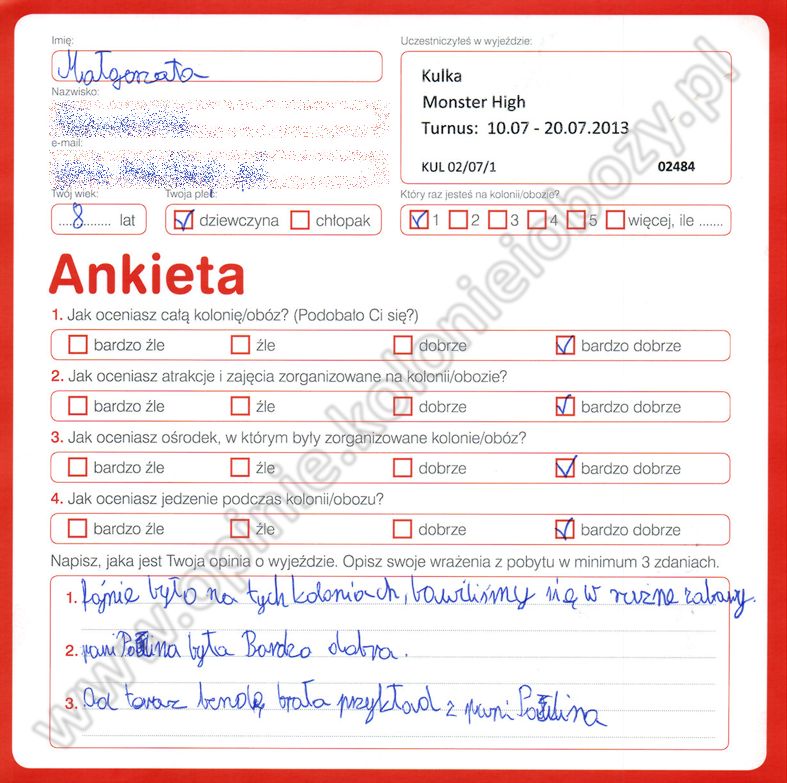 Imię:
Uczestniczyłeś w wyjeździe:
Małgorzata
Kulka
Monster High
Turnus: 10.07 - 20.07.2013
KUL 02/07/1 02484
Nazwisko:
e-mail:
Twój wiek:
Twoja płeć:
Który raz jesteś na kolonii/obozie?
....8........ lat
dziewczyna chłopak
1 2 3 4 5 więcej, ile .......
Ankieta
1. Jak oceniasz całą kolonię/obóz? (Podobało Ci się?)
bardzo źle źle dobrze bardzo dobrze
2. Jak oceniasz atrakcje i zajęcia zorganizowane na kolonii/obozie?
bardzo źle źle dobrze bardzo dobrze
3. Jak oceniasz ośrodek, w którym były zorganizowane kolonie/obóz?
bardzo źle źle dobrze bardzo dobrze
4. Jak oceniasz jedzenie podczas kolonii/obozu?
bardzo źle źle dobrze bardzo dobrze
Napisz, jaka jest Twoja opinia o wyjeździe. Opisz swoje wrażenia z pobytu w minimum 3 zdaniach.
1. fajnie było na tych koloniach, bawiliśmy się w ruzne zabawy.
2. pani Paulina była Bardzo dobra.
3. Od taraz bendę brała przykład z pani Paulina
www.opinie.kolonieiobozy.pl